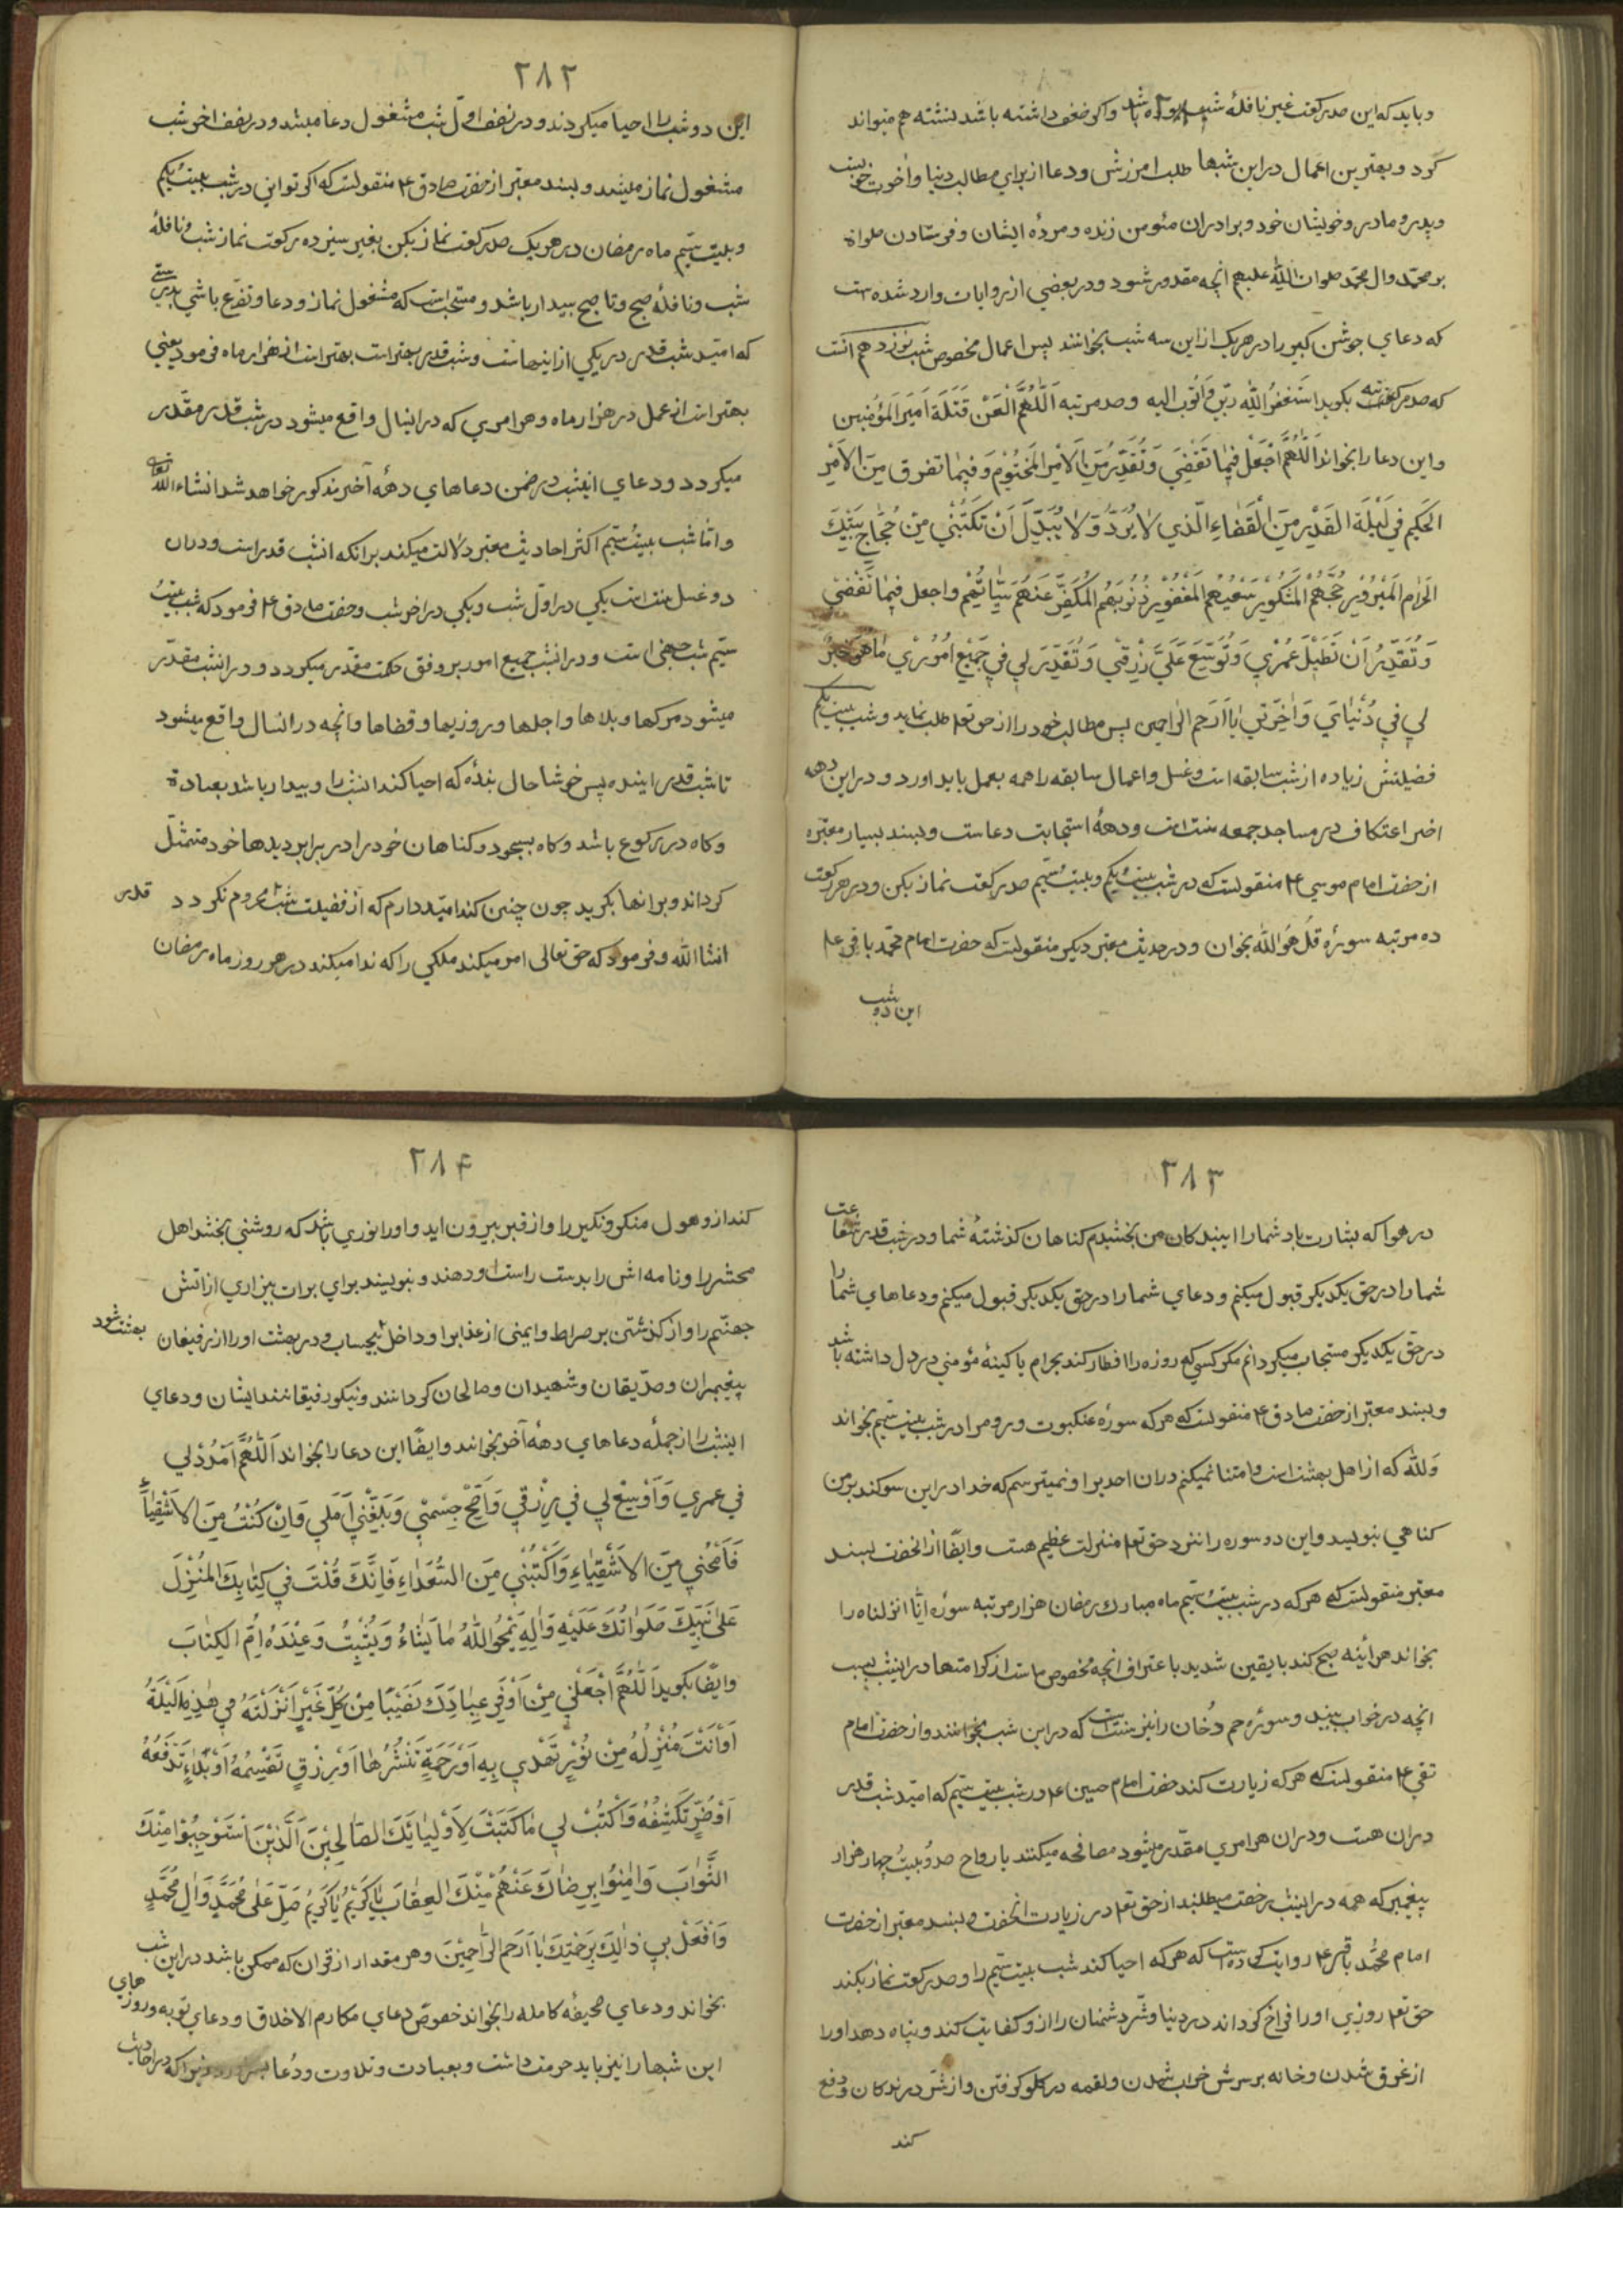 و باید که این صد رکعت غیر نافلهٔ شب بوده باشد و اکر ضعف داشته باشد نشسته هم میتواند
کرد و بهترین اعمال در این شبها طلب امرزش و دعا از برای مطالب دنیا و آخرت خویست
و پدر و مادر و خویشان خود و برادران مئومن زنده و مردهٔ ایشان و فرستادن صلواة
بر محمّد و ال محمّد صلوات اللّه علیهم انچه مقدور شود و در بعضي از روایات وارد شده است
که دعاي جوشن کبیر را در هر یک از این سه شب بخوانند پس اعمال مخصوص شب نوزدهم انست
که صد مرتبه بکوید اَستَغفِرُ اللّٰهَ رَبّی وَ اَتُوبُ الیه و صد مرتبه اَللّٰهُمَّ الْعَنْ قَتَلَةَ اَمیَرِ المَؤُمِنین
و این دعا را بخواند اَللّٰهُمَّ اجْعَلْ فیٖمٰا تَقْضیٖ وَ تُقَدِّرُ مِنَ الاَمْرِ المَحْتُوْمِ وَ فیٖمٰا تفرق مِنَ الاَمْرِ
الحَکیمِ فی لَیْلَةِ القَدْرِ مِنَ الْقَضٰاءِ الّذی لاٰ یُرَدُّ وَ لاٰ یُبَدَّلُ اَنْ تَکْتُبَنْی مِنْ حُجّٰاجِ بَیْتِکَ
الحَرٰامِ المَبْرُوْرِ حَجُّهُمْ المَشْکُوْرِ سَعْیُهُمْ المَغْفُوْرِ ذُنُوبُهُم المُکَفَّرِ عَنْهُمْ سَیّئٰاتُهُمْ و اجعل فیٖمٰا تَقْضیٖ
وَ تُقَدِّرُ اَنْ تُطیٖلَ عُمْریٖ وَ تُوَسِّعَ عَلَیَّ رِزْقیٖ وَ تُقَدِّرَ لی فی جَمیْعِ اُمُوْرْیٖ مٰا هُوَ خَیرٌ
لی فی دُنْیٰایَ وَ اٰخِرَتیٖ یٰا اَرْحَمَ الرّٰاحمین پس مطالب خود را از حق تعم طلب نماید و شب بیست یکم
فضیلتش زیاده از شب سابقه است و غسل و اعمال سابقه را همه بعمل باید اورد و در این دهه
اخر اعتکاف در مساجد جمعه سنت است و دههٔ استجابت دعاست و بسند بسیار معتبره
از حضرت امام موسی ۴ منقولست که در شب بیست یکم و بیست سیّم صد رکعت نماز بکن و در هر رکعت
ده مرتبه سورهٔ قُل هُوَ اللّه بخوان و در حدیث معتبر دیکر منقولست که حضرت امام محمّد باقر علم
این دو شب
۲۸۲
این دو شب را احیا میکردند و در نصف اوّل شب مشغول دعا میشد و در نصف اخر شب
مشغول نماز میشد و بسند معتبر از حضرت صادق ۴ منقولست که اکر توانی در شب بیست یکم
و بیست سیّم ماه رمضان در هر یک صد رکعت نماز بکن بغیر سیزده رکعت نماز شب و نافلهٔ
شب و نافلهٔ صبح و تا صبح بیدار باشد و مستحبّ است که مشغول نماز و دعا و تضرّع باشي بدرستی
که امّید شب قدر در یکي از اینهاست و شب قدر بهتر است بهتر است از هزار ماه فرمود یعنی
بهتر است از عمل در هزار ماه و هر امری که در اینسال واقع میشود در شب قدر مقدّر
میکردد و دعاي اینشب در ضمن دعاهاي دههٔ آخر مذکور خواهد شد انشاء اللّه تعالی
و امّا شب بیست سیّم اکثر احادیث معتبر دلالت میکند بر انکه انشب قدر است و در ان
دو غسل سنت است یکي در اوّل شب و یکي در اخر شب و حضرت صادق ۴ فرمود که شب بیست
سیّم شب جهنی است و در انشب جمیع امور بر وفق حکمت مقدّر میکردد و در انشب مقدّر
میشود مرکها و بلاها و اجلها و روزیها و قضاها و انچه در انسال واقع میشود
تا شب قدر اینده پس خوشا حال بندهٔ که احیا کند انشب را و بیدار باشد بعبادة
و کاه در رکوع باشد و کاه بسجود و کناهان خود را در برابر دیدها خود متمثّل
کرداند و بر انها بکرید چون چنین کند امّید دارم که از فضیلت شب محروم نکردد قدر
انشا اللّه و فرمود که حق تعالی امر میکند ملکي را که ندا میکند در هر روز ماه رمضان
۲۸۳
در هوا که بشارت باد شما را ای بندکان من بخشیدم کناهان کذشتهٔ شما و در شب قدر شفاعت
شما را در حق یکدیکر قبول میکنم و دعاي شما را در حق یکدیکر قبول میکنم و دعاهاي شما را
در حق یکدیکر مستجاب میکردانم مکر کسي که روزه را افطار کند بحرام یا کینهٔ مؤمنی در دل داشته باشد
و بسند معتبر از حضرت صادق ۴ منقولست که هر که سورهٔ عنکبوت و روم را در شب بیست سیّم بخواند
وَ للّه که از اهل بهشت است و استثنا نمیکنم در ان احدیرا و نمیترسم که خدا در این سوکند بر من
کناهي بنویسد و این دو سوره را نزد حق تعم منزلت عظیم هست و ایضاً از انحضرت بسند
معتبر منقولست که هر که در شب بیست سیّم ماه مبارک رمضان هزار مرتبه سورهٔ انّا انزلناه را
بخواند هر اینه صبح کند با یقین شدید با عتراف انچه مخصوص ماست از کرامتها در اینشب بسبب
انچه در خواب بیند و سورهٔ حم دُخان را نیز سنت است که در این شب بخوانند و از حضرت امام
تقی ۴ منقولست که هر که زیارت کند حضرت امام حسین ۴ در شب بیست سیّم که امّید شب قدر
در ان هست و در ان هر امری مقدّر میشود مصافحه میکنند با او ارواح صد و بیست چهار هزار
پیغمبر که همه در اینشب رخصت میطلبند از حق تعم در زیارت انحضرت و بسند معتبر از حضرت
امام محُمّد باقر ۴ روایت کرده است که هر که احیا کند شب بیست سیّم را و صد رکعت نماز بکند
حق تعم روزی او را فراخ کرداند در دنیا و شّر دشمنان را از و کفایت کند و پناه دهد او را
از غرق شدن و خانه بر سرش خراب شدن و لقمه در کلو کرفتن و از شّر درندکان و دفع
کند
۲۸۴
کند از و هول منکر و نکیر را و از قبر بیرون اید و او را نوری باشد که روشنی بخشد اهل
محشر را و نامه اش را بدست راست او دهند و بنویسند براي برات بیزاري از اتش
جهنّم را و از کذشتن بر صراط و ایمنی از عذابرا و داخل بیحساب و در بهشت او را از رفیقان بهشت شود
پیغمبران و صدّیقان و شهیدان و صالحان کردانند و نیکو رفیقانند ایشان و دعاي
اینشب را از جملهٔ دعاهاي دههٔ آخر بخوانند و ایضًا این دعا را بخواند اَللّٰهُمَّ امْدُدْ لی
فی عمری وَ اَوْسِعْ لی فی رِزْقی وَ اَصِحَّ جِسْمیْ وَ بَلِّغْنی اَمَلی وَ اِنْ کُنْتُ مِنَ الاَشْقِیٰاءِ
فَامْحُنی مِنَ الاَشْقِیٰاءِ وَ اکْتُبْنی مِنَ السُّعَدٰاءِ فَاِنَّکَ قُلْتَ فی کِتٰابِکَ المُنْزَلِ
عَلیٰ نَبِیِّکَ صَلَوٰاتُکَ عَلَیْهِ وَ اٰلِهِ یَمْحُو اللّٰهُ مٰا یَشٰاءُ وَ یُثْبِتُ وَ عِنْدَهُ اُمُّ الکِتٰابِ
و ایضًا بکوید اَللّٰهُمَّ اجْعَلنی مِنْ اَوْفَرِ عِبٰادِکَ نَصیٖبًا مِنْ کُلِّ خَیْرٍ اَنْزَلْتَهُ فی هٰذِهِ اللَیْلَةِ
اَوْ اَنْتَ مُنْزِلُهُ مِنْ نُوْرٍ تَهْدی بِهِ اَوْ رَحْمَةٍ تَنْشُرُهٰا اَوْ رِزْقٍ تَقْسِمُهُ اَوْ بَلاٰءٍ تَدْفَعُهُ
اَوْ ضُرٍّ تَکْشِفُهُ وَ اکْتُبْ لی مٰا کَتَبْتَ لِاَوْلِیٰائِکَ الصّٰالِحیٖنَ الَّذیْنَ اسْتَوْجَبُوْا مِنْکَ
الثَّوٰابَ وَ اٰمِنُوْا بِرِضٰاکَ عَنْهُمْ مِنْکَ العِقٰابَ یٰا کَریٖمُ یٰا کَریٖمُ صَلِّ عَلیٰ مُحَمَّدٍ وَ اٰلِ مُحَمَّدٍ
وَ افْعَلْ بی ذٰلِکَ بِرَحْمَتِکَ یٰا اَرْحَمَ الرّٰاحِمیْنَ و هر مقدار از قران که ممکن باشد در این شب
بخواند و دعاي صحیفهٔ کامله را بخواند خصوص دعاي مکارم الاخلاق و دعاي توبه و روزهای
این شبها را نیز باید حرمت داشت و بعبادت و تلاوت و دُعا بسر زیرا که در احادیث